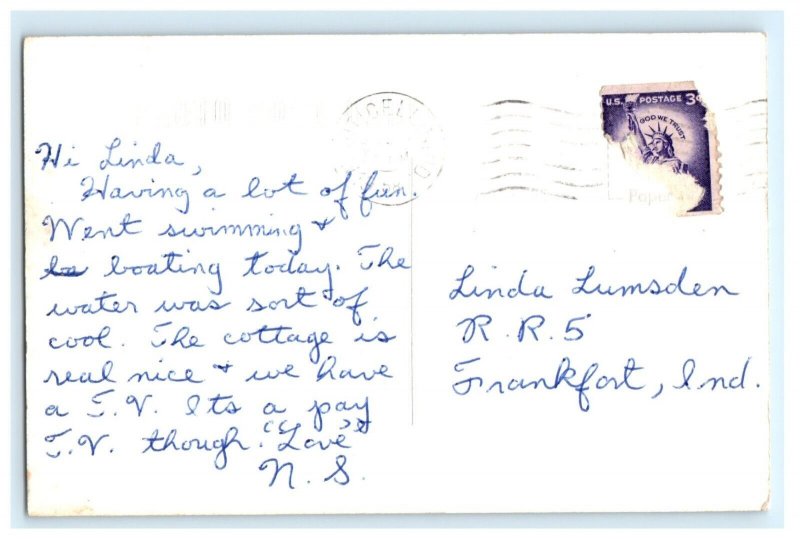 U.S. POSTAGE 3¢
GOD WE TRUST
Hi Linda,
Having a lot of fun.
Went swimming &
boating today. The
water was sort of
cool. The cottage is
real nice & we have
a T.V. Its a pay
T.V. though. "Love"
N. S.
Linda Lumsden
R. R. 5
Frankfort, Ind.